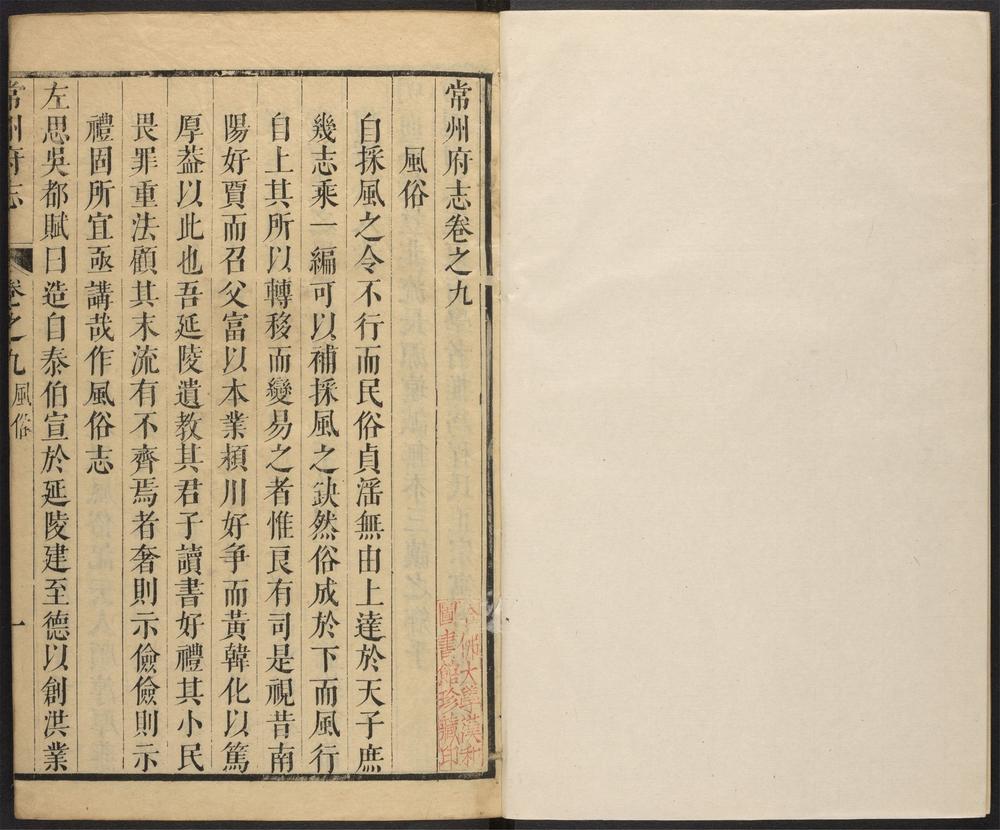 常州府志卷之九
風俗
自採風之令不行而民俗貞滛無由上達於天子庶
幾志乘一編可以補採風之缺然俗成於下而風行
自上其所以轉移而變易之者惟良有司是視昔南
陽好賈而召父富以本業頴川好争而黃韓化以篤
厚葢以此也吾延陵遺教其君子讀書好禮其小民
畏罪重法顧其末流有不齊焉者奢則示儉儉則示
禮固所宜亟講哉作風俗志
左思吳都賦曰造自泰伯宣於延陵建至德以創洪業
常州府志 卷之九 風俗 一
哈佛大學漢和
圖書館珍藏印